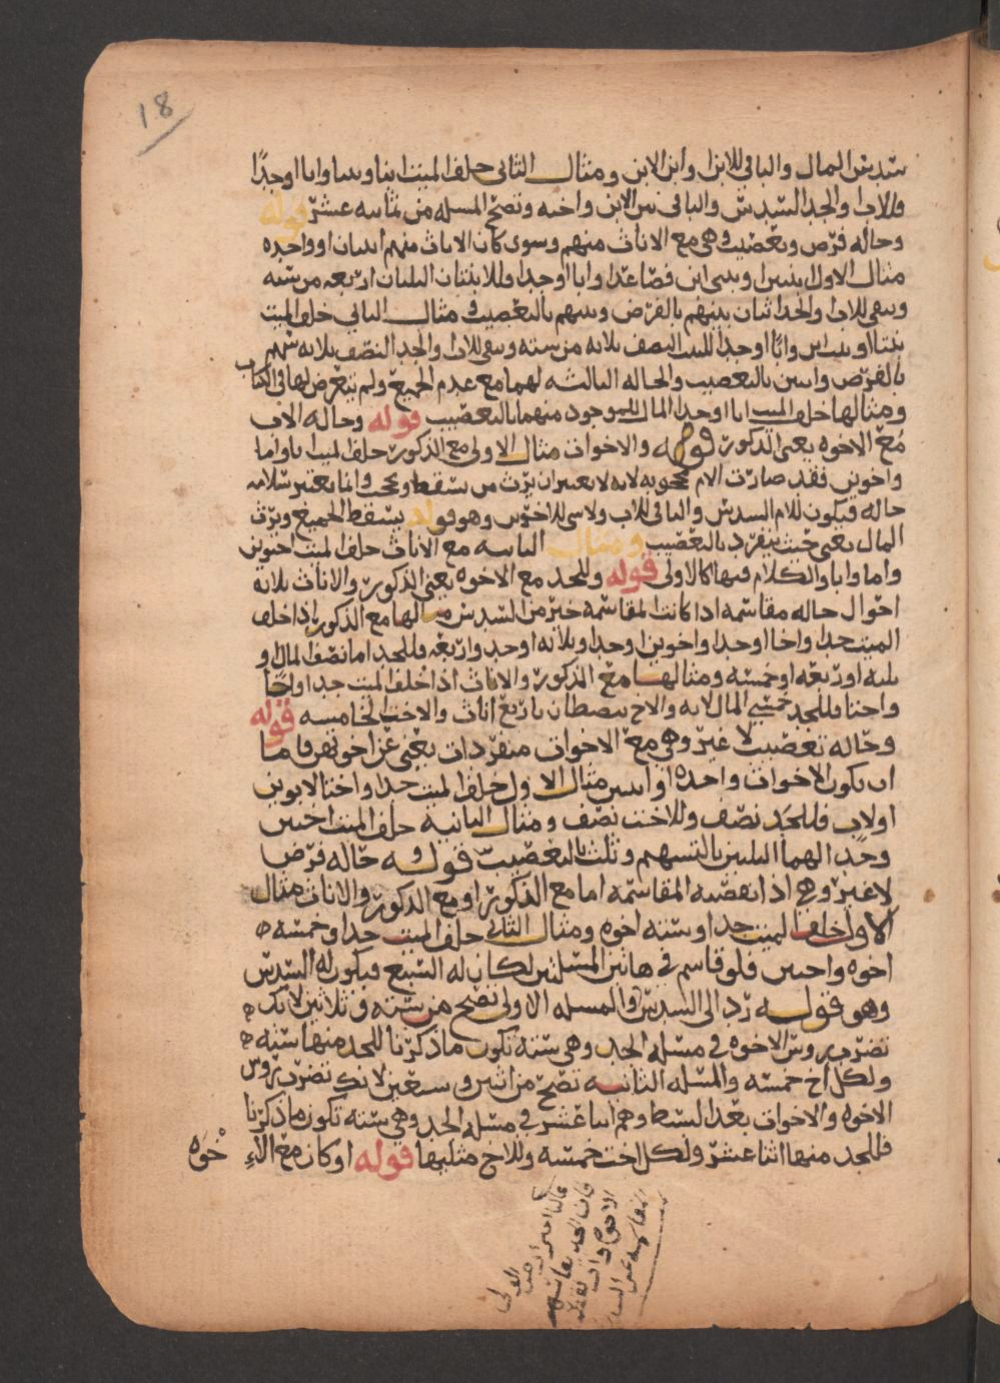 18
سدس المال والباقي للابن وابن الابن ومثال الثاني خلف الميت ابنا وبنتا وابا اوجدًا
فللاب او الجد السدس والباقي بين الابن واخته وتصح المسله من ثمانيه عشر قوله
وحاله فرض وتعصيب وهي مع الاناث منهم وسوى كان الاناث منهم اثنتان او واحده
مثال الاول بنتين او بنتى ابن فصاعدا وابا اوجدا فللابنتان الثلثان اربعه من سته
ويبقى للاب او الجد اثنان بينهم بالفرض وسهم بالتعصيب ومثال الثاني خلف الميت
بنتا او بنت ابن وابًا اوجدا للبنت النصف ثلاثه من سته ويبقى للاب او الجد النصف ثلاثه سهم
بالفرض واثنين بالتعصيب والحاله الثالثه لهما مع عدم الجميع ولم يتعرض لها في الكتاب
ومثالها خلف الميت ابا اوجدا المال للموجود منهما بالتعصيب قوله وحاله الاب
مع الاخوه يعني الذكور قوله والاخوات مثال الاولى مع الذكور خلف الميت ابا واما
واخوين فقد صارت الام محجوبه لانه لا يعتبر ان يرث من سقط او حجب وانما يعتبر سلامه
حاله فيكون للام السدس والباقي للاب ولا شى للاخوين وهو قوله يسقط الجميع ويرث
المال يعني حيث ينفرد بالتعصيب ومثال الثانيه مع الاناث خلف الميت اختين
واما وابا والكلام فيها كالاولى قوله وللجد مع الاخوه يعني الذكور والاناث ثلاثه
احوال حاله مقاسمه اذا كانت المقاسمه خير من السدس مثالها مع الذكور اذا خلف
الميت جدا واخا اوجدا واخوين اوجدا وثلاثه اوجد واربعه فللجد اما نصف المال او
ثلثه او ربعه او خمسه ومثالها مع الذكور والاناث اذا خلف الميت جدا واخًا
واختا فللجد خمسي المال لانه والاخ يسقطان باربع اناث والاخت الخامسه قوله
وحاله تعصيب لا غير وهي مع الاخوات منفردات يعني عن اخوتهن فاما
ان يكون الاخوات واحده او اثنتين مثال الاول خلف الميت جدا واختا لابوين
اولاب فللجد نصف وللاخت نصف ومثال الثانيه خلف الميت اختين
وجدا لهما الثلثين بالتسهيم وثلث بالتعصيب قوله حاله فرض
لا غير وهي اذا نقصته المقاسمه اما مع الذكور او مع الذكور والاناث مثال
الاول خلف الميت جدا وسته اخوه ومثال الثاني خلف الميت جدا وخمسه
اخوه واختين فلو قاسم في هاتين المسلتين لكان له السبع فيكون له السدس
وهو قوله رد الى السدس والمسله الاولى تصح من سته وثلاثين لانك
تضرب روس الاخوه في مسله الجد وهي سته تكون ما ذكرنا للجد منها سته
ولكل اخ خمسه والمسله الثانيه تصح من اثنين وسبعين لانك تضرب روس
الاخوه والاخوات بعد البسط وهم اثنا عشر في مسله الجد وهي سته تكون ما ذكرنا
فللجد منها اثنا عشر ولكل اخت خمسه وللاخ مثليها قوله او كان مع الاخوه